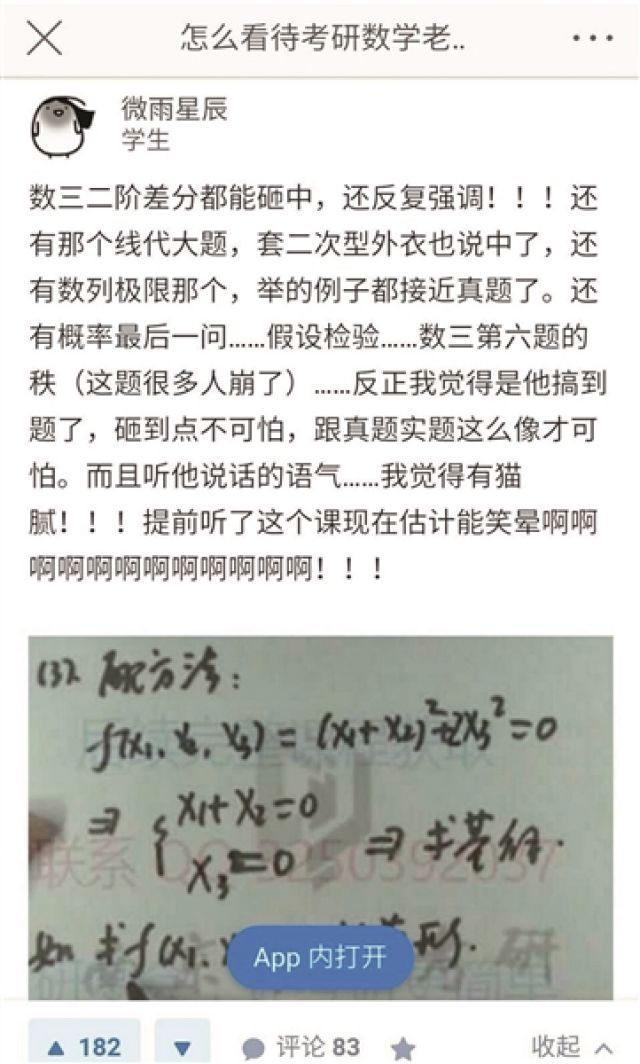 怎么看待考研数学老..
微雨星辰
学生
数三二阶差分都能砸中，还反复强调！！！还
有那个线代大题，套二次型外衣也说中了，还
有数列极限那个，举的例子都接近真题了。还
有概率最后一问……假设检验……数三第六题的
秩（这题很多人崩了）……反正我觉得是他搞到
题了，砸到点不可怕，跟真题实题这么像才可
怕。而且听他说话的语气……我觉得有猫
腻！！！提前听了这个课现在估计能笑晕啊啊
啊啊啊啊啊啊啊啊啊啊！！！
(3). 配方法：
f(x₁, x₂, x₃) = (x₁+x₂)²+2x₃²=0
⇒ { x₁+x₂=0
x₃=0 ⇒ 求基础解.
联系 QQ
求f(x₁.
App 内打开
182
评论 83
收起